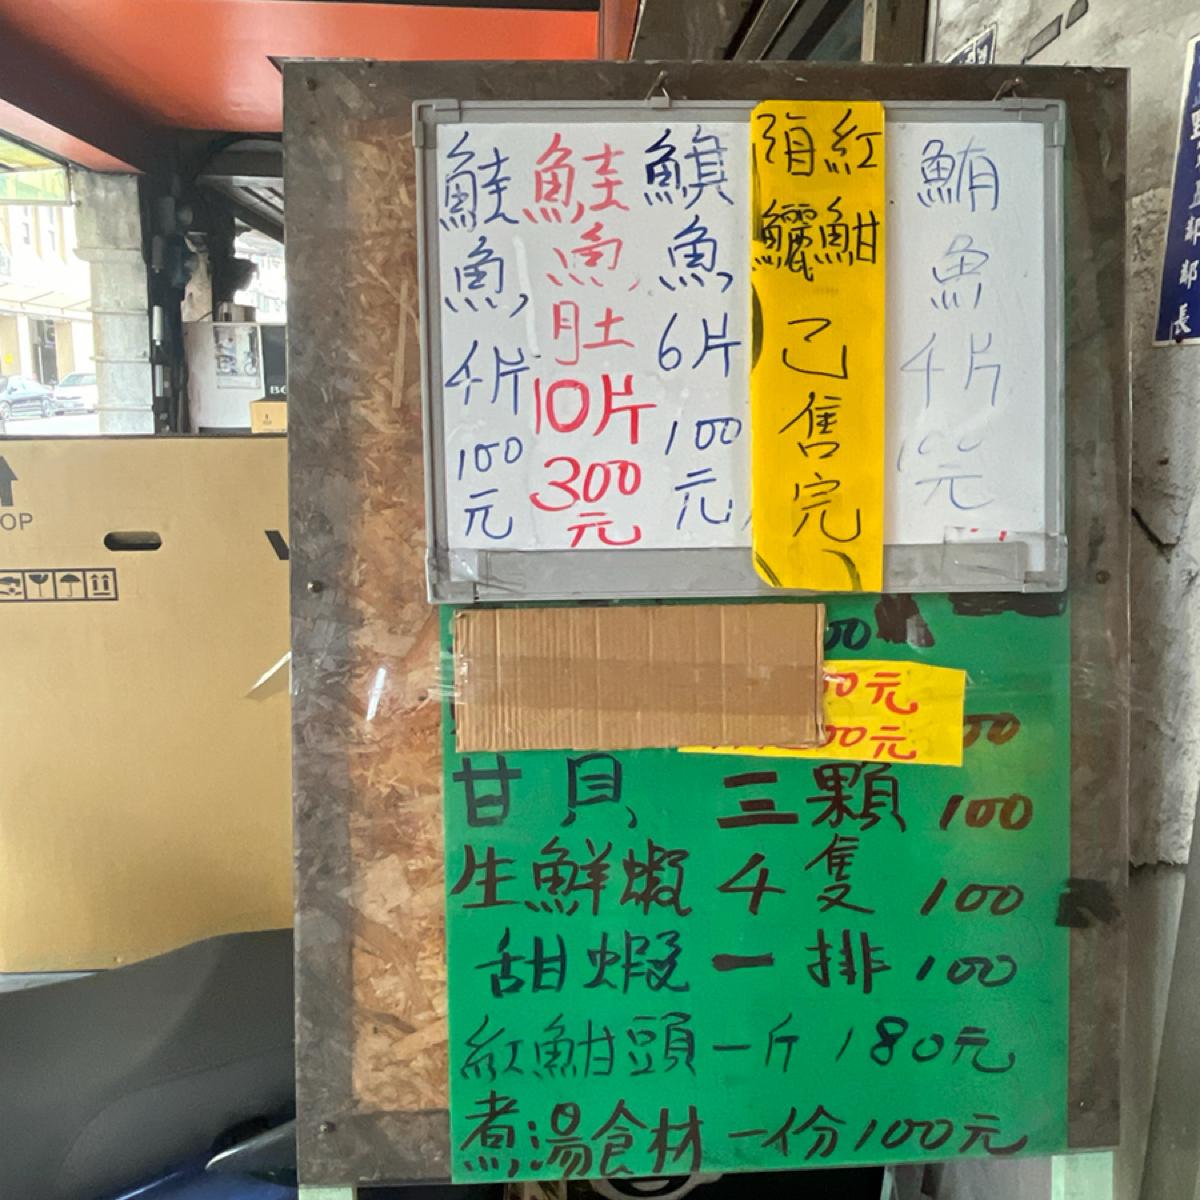 鮪魚4片100元
紅魽
頭鱺
已售完
鱘魚6片100元
鮭魚肚10片300元
鮭魚4片100元
00
0元
00元
00
甘貝 三顆 100
生鮮蝦 4隻 100
甜蝦 一排 100
紅魽頭一斤 180元
煮湯食材一份100元
部長
OP